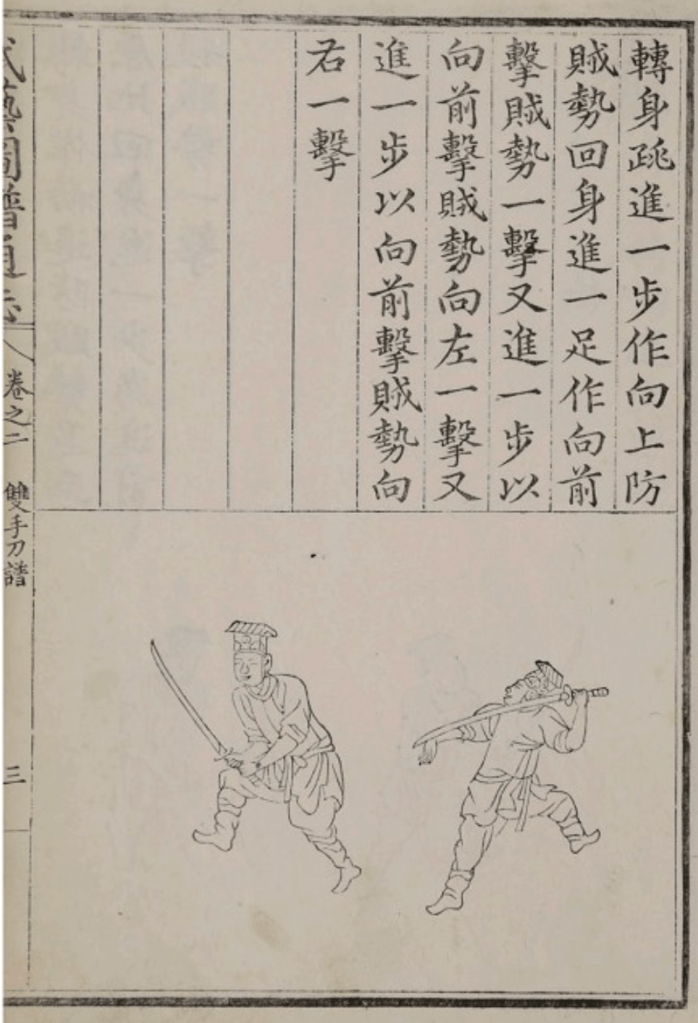 轉身跳進一步作向上防
賊勢回身進一足作向前
擊賊勢一擊又進一步以
向前擊賊勢向左一擊又
進一步以向前擊賊勢向
右一擊
武藝圖譜通志
卷之二
雙手刀譜
三